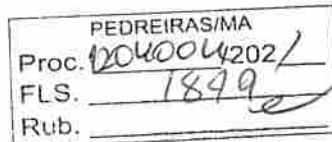 PEDREIRAS/MA
Proc. 12040042021
FLS. 1849
Rub.